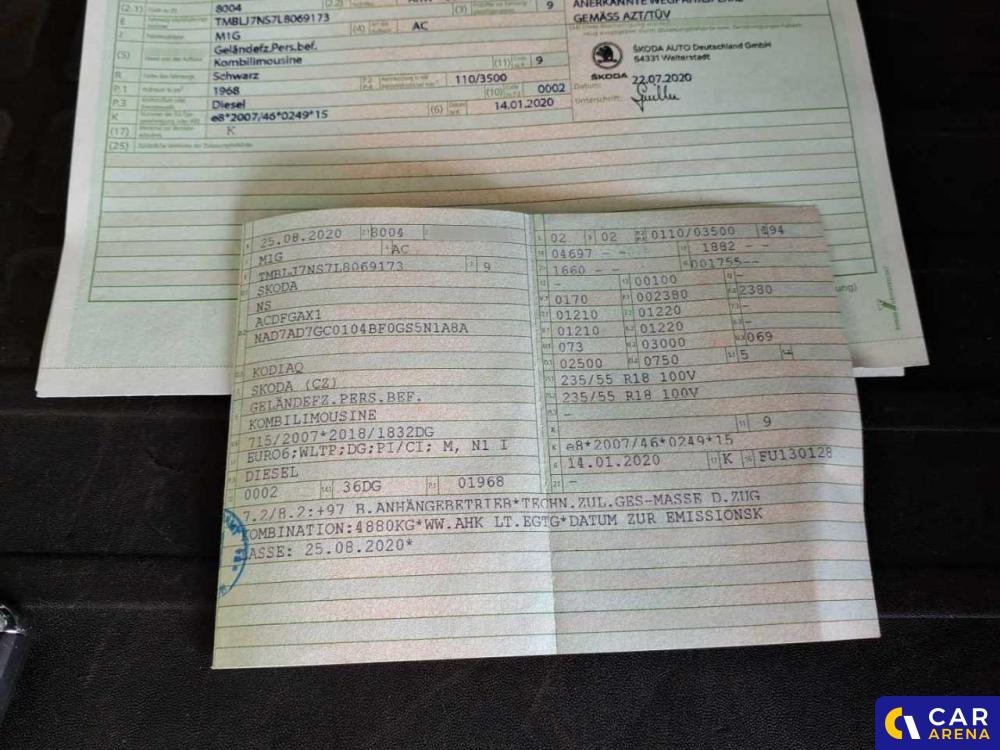 (2.1) 8004 (2.2)
E TMBLJ7NS7L8069173 (3) 9
J M1G (4) AC
(5) Geländefz.Pers.bef.
Kombilimousine (11) 9
R Schwarz 110/3500
P.1 1968 (10) 0002
P.3 Diesel (6) 14.01.2020
K e8*2007/46*0249*15
(17) K
(25)
GEMÄSS AZT/TÜV
ŠKODA AUTO Deutschland GmbH
64331 Weiterstadt
ŠKODA
Datum: 22.07.2020
Unterschrift:
25.08.2020 8004
M1G AC
TMBLJ7NS7L8069173 9
SKODA
NS
ACDFGAX1
NAD7AD7GC0104BF0GS5N1A8A
KODIAQ
SKODA (CZ)
GELÄNDEFZ.PERS.BEF.
KOMBILIMOUSINE
715/2007*2018/1832DG
EURO6;WLTP;DG;PI/CI; M, N1 I
DIESEL
0002 36DG 01968
02 02 0110/03500 94
04697 - - 1882 - -
1660 - - 001755--
- 00100 -
0170 002380 2380
01210 01220 -
01210 01220 -
073 03000 069
02500 0750 5
235/55 R18 100V
235/55 R18 100V
-
9
e8*2007/46*0249*15
14.01.2020 K FU130128
-
7.2/8.2:+97 B.ANHÄNGEBETRIEB*TECHN.ZUL.GES-MASSE D.ZUG
KOMBINATION:4880KG*WW.AHK LT.EGTG*DATUM ZUR EMISSIONSK
LASSE: 25.08.2020*
CAR
ARENA